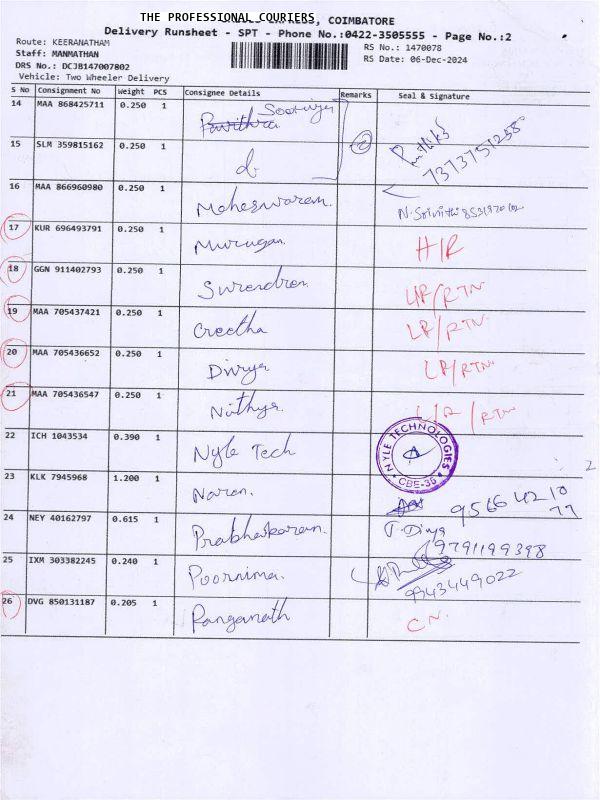 THE PROFESSIONAL COURIERS
EXPRESS, COIMBATORE
Delivery Runsheet - SPT - Phone No.:0422-3505555 - Page No.:2
Route: KEERANATHAM
RS No.: 1470078
Staff: MANMATHAN
RS Date: 06-Dec-2024
DRS No.: DCJB147007802
Vehicle: Two Wheeler Delivery
S No Consignment No Weight PCS Consignee Details Remarks Seal & Signature
14 MAA 868425711 0.250 1 Pavithra Sooriya
15 SLM 359815162 0.250 1 7373751258
16 MAA 866960980 0.250 1 Maheswaram N. Srinithi
17 KUR 696493791 0.250 1 Murugan H/R
18 GGN 911402793 0.250 1 Surendren LR/RTN
19 MAA 705437421 0.250 1 Creetha LR/RTN
20 MAA 705436652 0.250 1 Divya LR/RTN
21 MAA 705436547 0.250 1 Nithya L/R / RTN
22 ICH 1043534 0.390 1 Nyle Tech NYLE TECHNOLOGIES CBE-35
23 KLK 7945968 1.200 1 Naren 9566421077
24 NEY 40162797 0.615 1 Prabhakaran T. Divya 9791199398
25 IXM 303382245 0.240 1 Poornima 9943449022
26 DVG 850131187 0.205 1 Ranganath C N.